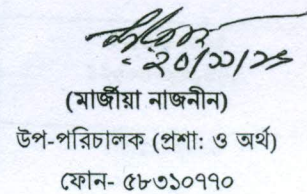 ২০/১১/২৪
(মার্জীয়া নাজনীন)
উপ-পরিচালক (প্রশা: ও অর্থ)
ফোন- ৫৮৩১০৭৭০